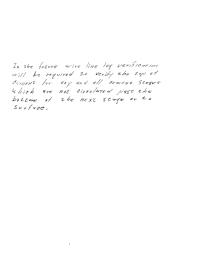 In the future wire line log verification
will be required to verify the top of
cement for any and all cement stages
which are not circulated past the
bottom of the next stage or to
surface.